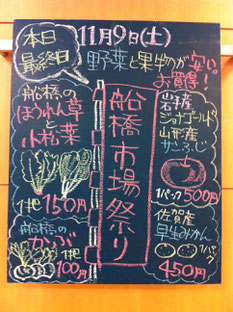 本日
最終日
11月9日(土)
野菜と果物が安い。
お買得!
船橋の
ほうれん草
と
小松菜
1把 150円
船橋市場祭り
岩手産
ジョナゴールド
山形産
サンふじ
1パック 500円
船橋の
かぶ
1把
100円
佐賀産
早生みかん
1パック
450円